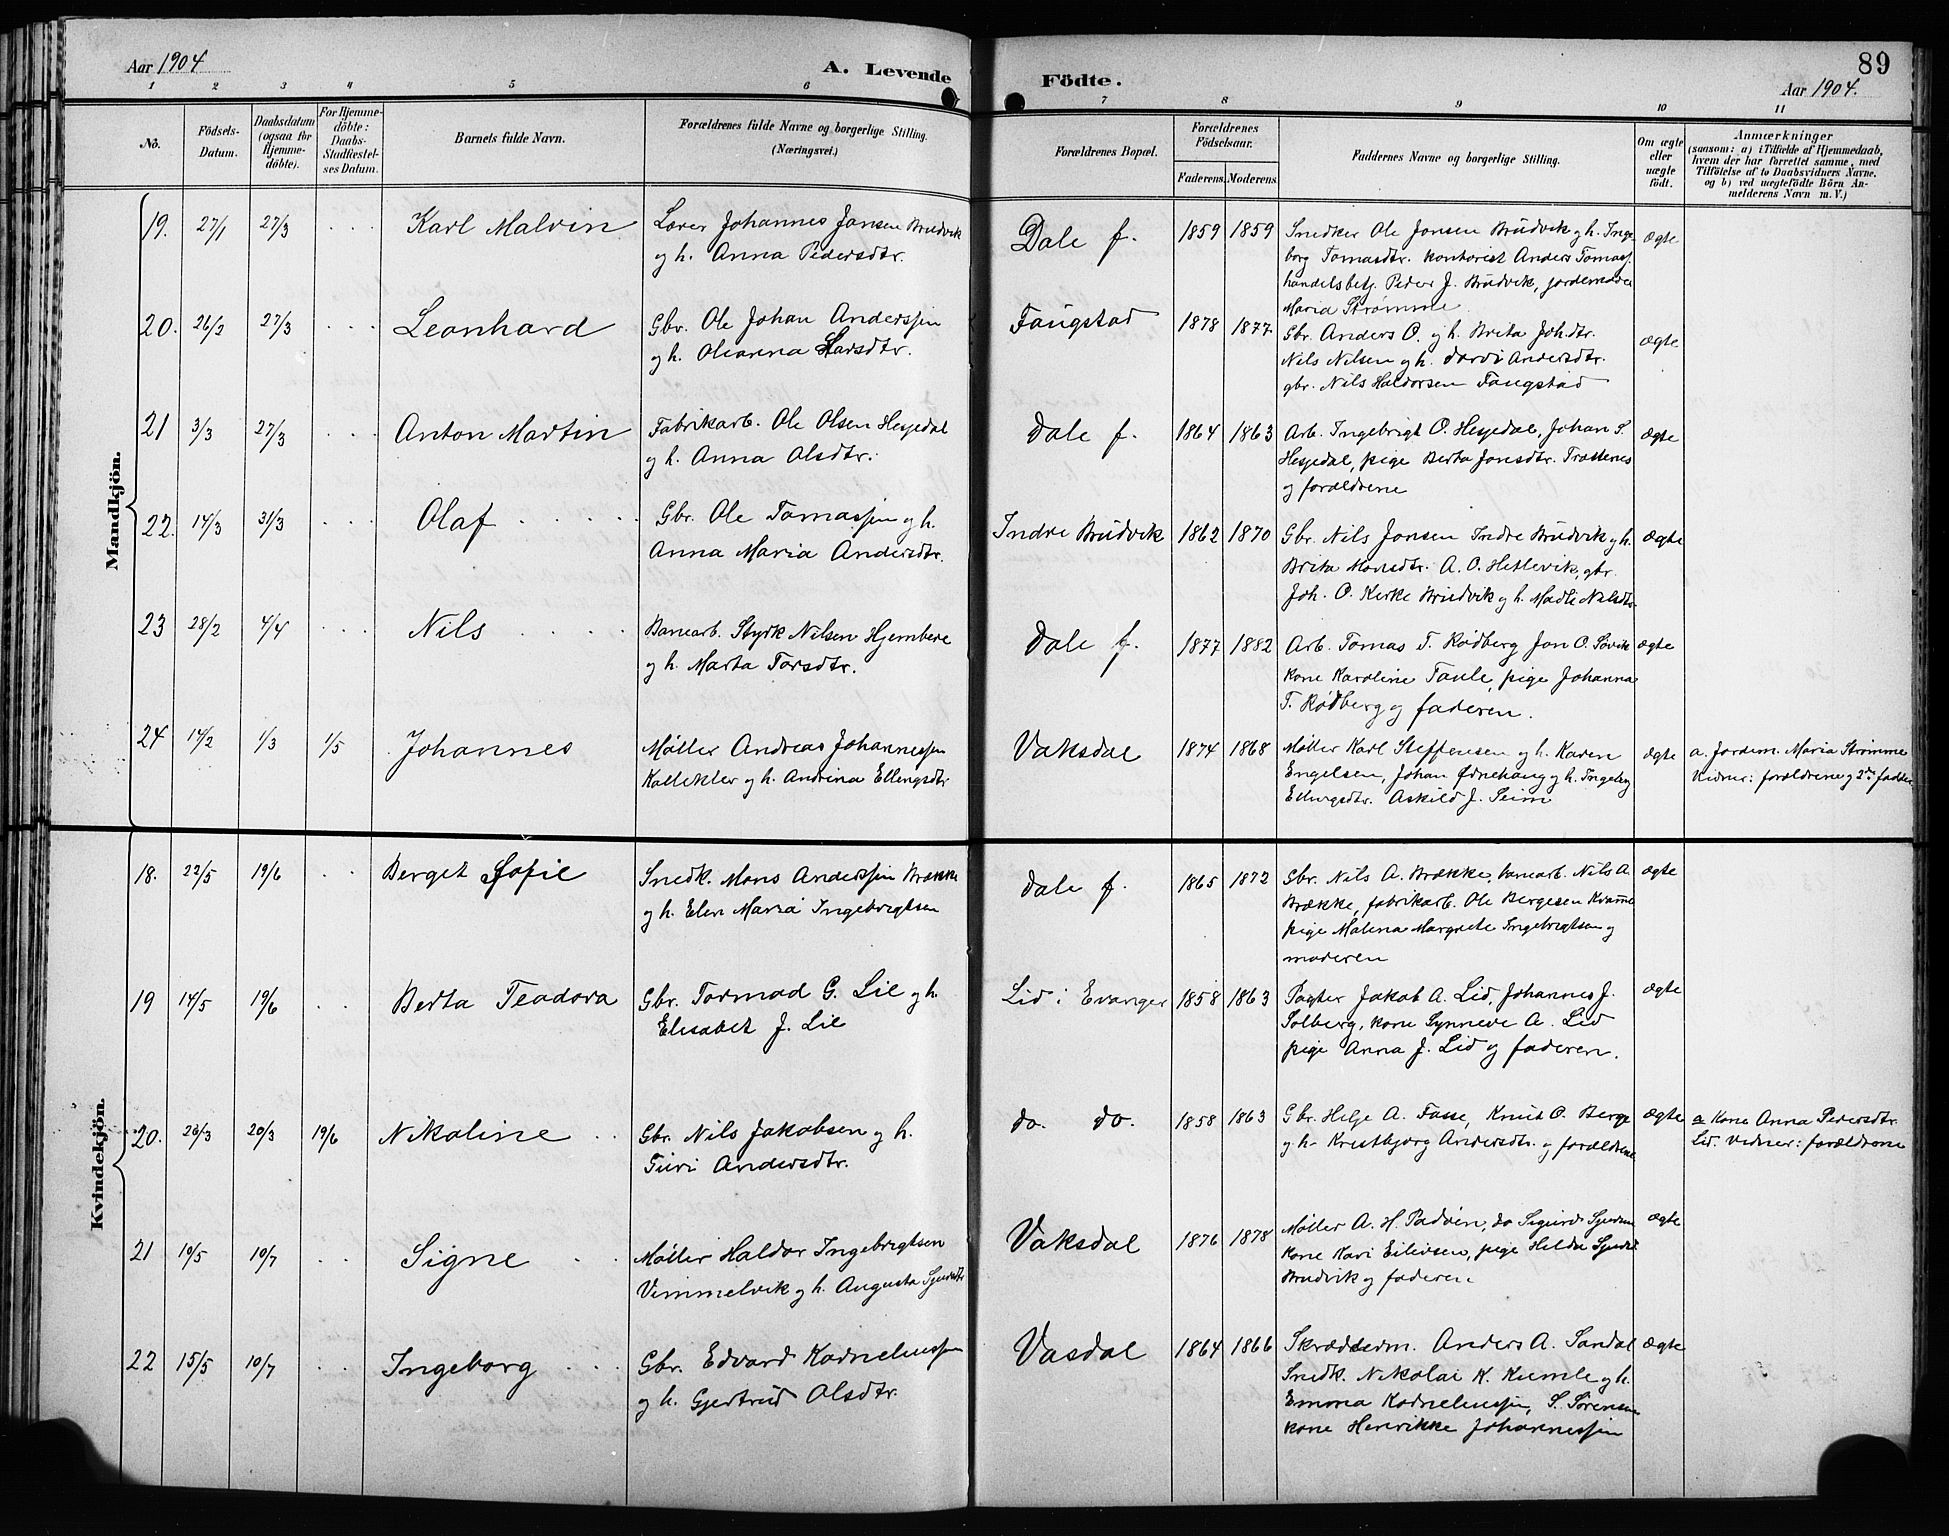 Aar 1904
A. Levende
Födte.
89
Aar 1904.
1 2 3 4 5 6 7 8 9 10 11
No.
Födsels-
Datum.
Daabsdatum
(ogsaa för
Hjemme-
döbte).
For Hjemme-
döbte:
Daabs-
Stadfæstel-
ses Datum.
Barnets fulde Navn.
Forældrenes fulde Navne og borgerlige Stilling.
(Næringsvei.)
Forældrenes Bopæl.
Forældrenes
Födselsaar.
Faderens. Moderens.
Faddernes Navne og borgerlige Stilling.
Om ægte
eller
uægte
født.
Anmærkninger
(saasom: a) i Tilfælde af Hjemmedaab,
hvem der har forrettet samme, med
Tilföielse af to Daabsvidners Navne.
og b) ved uægtefödte Börn An-
melderens Navn m. V.)
Mandkjön.
19. 27/1 27/3 Karl Malvin
Lærer Johannes Jansen Brudvik
og h. Anna Pedersdtr.
Dale f. 1859 1859
Snedker Ole Jonsen Brudvik og h. Inge
borg Tomasdtr. kontorist Anders Tomass.
handelsbetj. Peder J. Brudvik, jordemoder
Maria Strømme
ægte
20. 26/2 27/3 Leonhard
Gbr. Ole Johan Anderssen
og h. Olianna Larsdtr.
Faugstad 1878 1877
Gbr. Anders O. og h. Brita Joh.dtr.
Nils Nilsen og h. Andersdtr.
gbr. Nils Haldorsen Faugstad
ægte
21 3/3 27/3 Anton Martin
Fabrikarb. Ole Olsen Hesjedal
og h. Anna Olsdtr.
Dale f. 1864 1863
Arb. Ingebrigt O. Hesjedal, Johan S.
Hesjedal, pige Berta Jonsdtr. Trættenes
og forældrene
ægte
22. 14/3 31/3 Olaf
Gbr. Ole Tomassen og h.
Anna Maria Andersdtr.
Indre Brudvik 1862 1870
Gbr. Nils Jonsen Indre Brudvik og h.
Brita Monsdtr. A. O. Hetlevik, gbr.
Joh. O. Kirke Brudvik og h. Madli Nilsdtr.
ægte
23 28/2 4/4 Nils
Banearb. Styrk Nilsen Hjembere
og h. Marta Torsdtr.
Dale f. 1877 1882
Arb. Tomas T. Rødberg Jon O. Søvik
kone Karoline Taule, pige Johanna
T. Rødberg og faderen.
ægte
24 14/2 1/3 1/5 Johannes
Møller Andreas Johannessen
Kallekler og h. Andrina Ellingsdtr
Vaksdal 1874 1868
Møller Karl Steffensen og h. Karen
Engelsen, Johan Ødnehaug og h. Ingeborg
Ellingsdtr. Askild J. Seim
ægte
a. Jordem. Maria Strømme
Vidner: forældrene og 2de fadder
Kvindekjön.
18. 22/5 19/6 Berget Sofie
Snedk. Mons Anderssen Brække
og h. Elen Maria Ingebrigtsen
Dale f. 1865 1872
Gbr. Nils A. Brække, banearb. Nils A.
Brække, fabrikarb. Ole Bergesen Kvamme
pige Malena Margrete Ingebrigtsen og
moderen
ægte
19 14/5 19/6 Berta Teodora
Gbr. Tormod G. Lie og h.
Elisabet J. Lie
Lid i Evanger 1858 1863
Pagter Jakob A. Lid, Johannes J.
Solberg, kone Synneve A. Lid
pige Anna J. Lid og faderen.
ægte
20. 20/3 20/3 19/6 Nikoline
Gbr. Nils Jakobsen og h.
Turi Andersdtr.
do. do. 1858 1863
Gbr. Helje A. Fosse, Knut O. Berge
og h. Kristbjørg Andersdtr. og forældrene
ægte
a Kone Anna Pedersdtr.
Lid. Vidner: forældrene
21 19/5 10/7 Signe
Møller Haldor Ingebrigtsen
Vimmelvik og h. Augusta
Vaksdal 1876 1878
Møller A. H. Padøen, do Sigurd
kone Kari Eilevsen, pige Helda
Brudvik og faderen
ægte
22 15/5 10/7 Ingeborg
Gbr. Edvard Kornelinssen
og h. Gjertrud Olsdtr.
Vasdal 1864 1866
Skrædderm. Anders A. Sandal
Snedk. Nikolai K. Kumle og h.
Emona Kornelinssen, S. Sørensen
kone Henrikke Johannessen
ægte